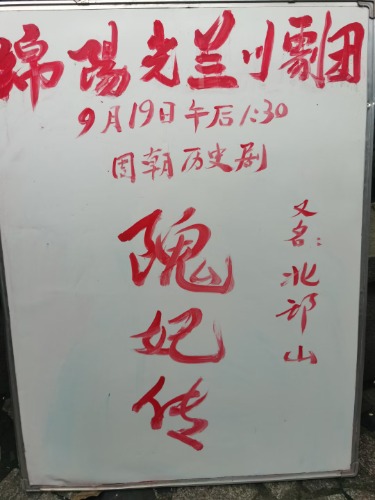 綿陽光兰川劇团
9月19日午后1:30
周朝历史剧
隗妃传
又名:北邙山